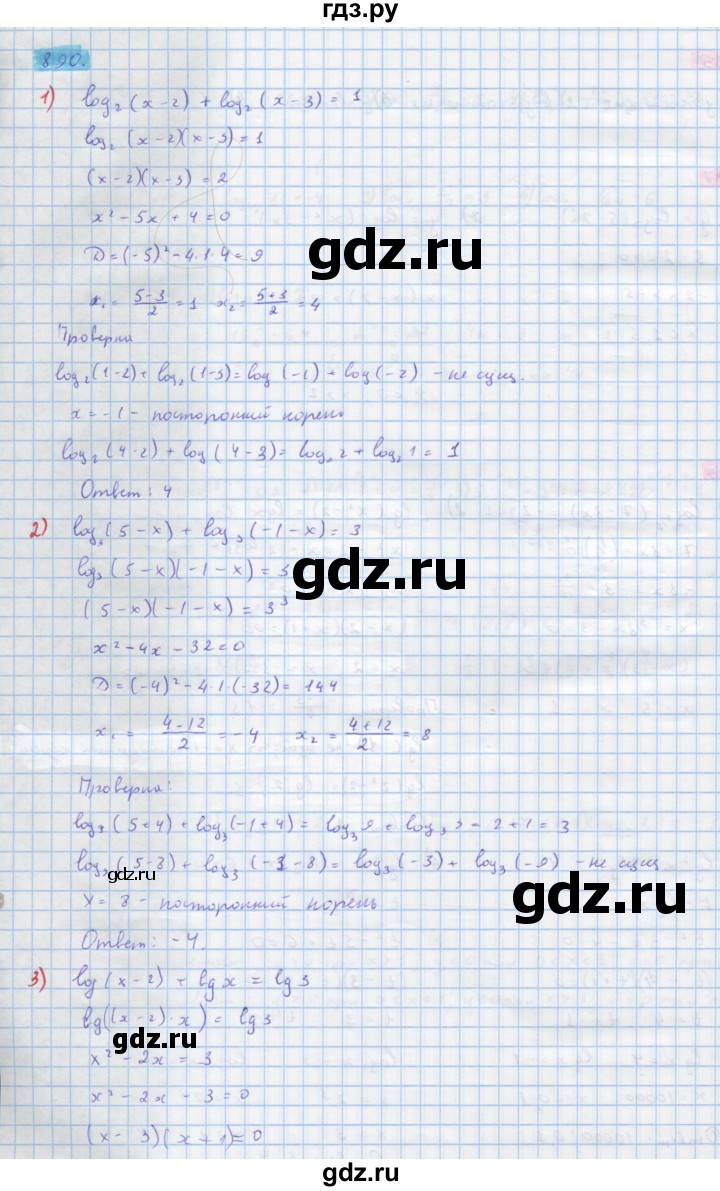 гдз.ру
890.
1) log₂(x-2) + log₂(x-3) = 1
log₂(x-2)(x-3) = 1
(x-2)(x-3) = 2
x² - 5x + 4 = 0
D = (-5)² - 4·1·4 = 9
gdz.ru
x₁ = (5-3)/2 = 1 x₂ = (5+3)/2 = 4
Проверка
log₂(1-2) + log₂(1-3) = log(-1) + log(-2) - не сущ.
x = -1 - посторонний корень
log₂(4-2) + log(4-3) = log₂2 + log₂1 = 1
Ответ: 4
2) log₃(5-x) + log₃(-1-x) = 3
log₃(5-x)(-1-x) = 3
gdz.ru
(5-x)(-1-x) = 3³
x² - 4x - 32 = 0
D = (-4)² - 4·1·(-32) = 144
x₁ = (4-12)/2 = -4 x₂ = (4+12)/2 = 8
Проверка:
log₃(5+4) + log₃(-1+4) = log₃9 + log₃3 = 2+1 = 3
log₃(5-8) + log₃(-1-8) = log₃(-3) + log₃(-9) - не сущ
gdz.ru
x = 8 - посторонний корень
gdz.ru
Ответ: -4.
3) log(x-2) + lg x = lg 3
lg((x-2)·x) = lg 3
gdz.ru
x² - 2x = 3
x² - 2x - 3 = 0
(x-3)(x+1) = 0
gdz.ru